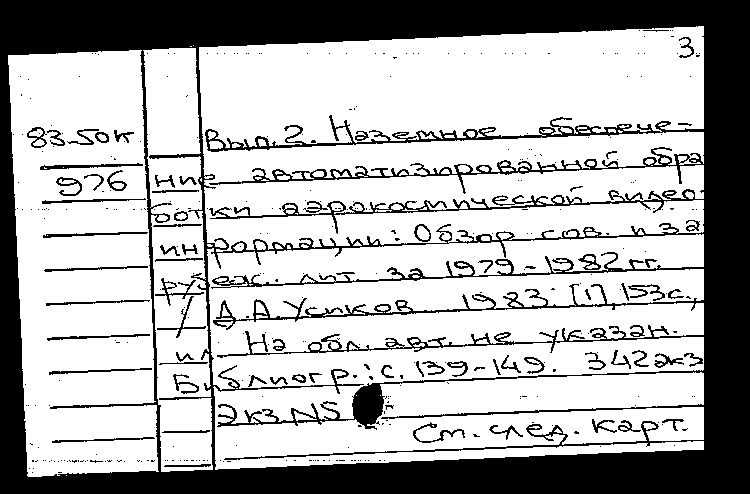 3.
83-50к Вып.2. Наземное обеспече-
976 ние автоматизированной обра
ботки аэрокосмической видео-
информации: Обзор сов. и за
рубеж. лит. за 1979-1982 гг.
/ Д.А. Усиков 1983. [1], 153 с.,
ил На обл. авт. не указан.
Библиогр.: с. 139-149. 342 экз
Экз N5
См. след. карт.